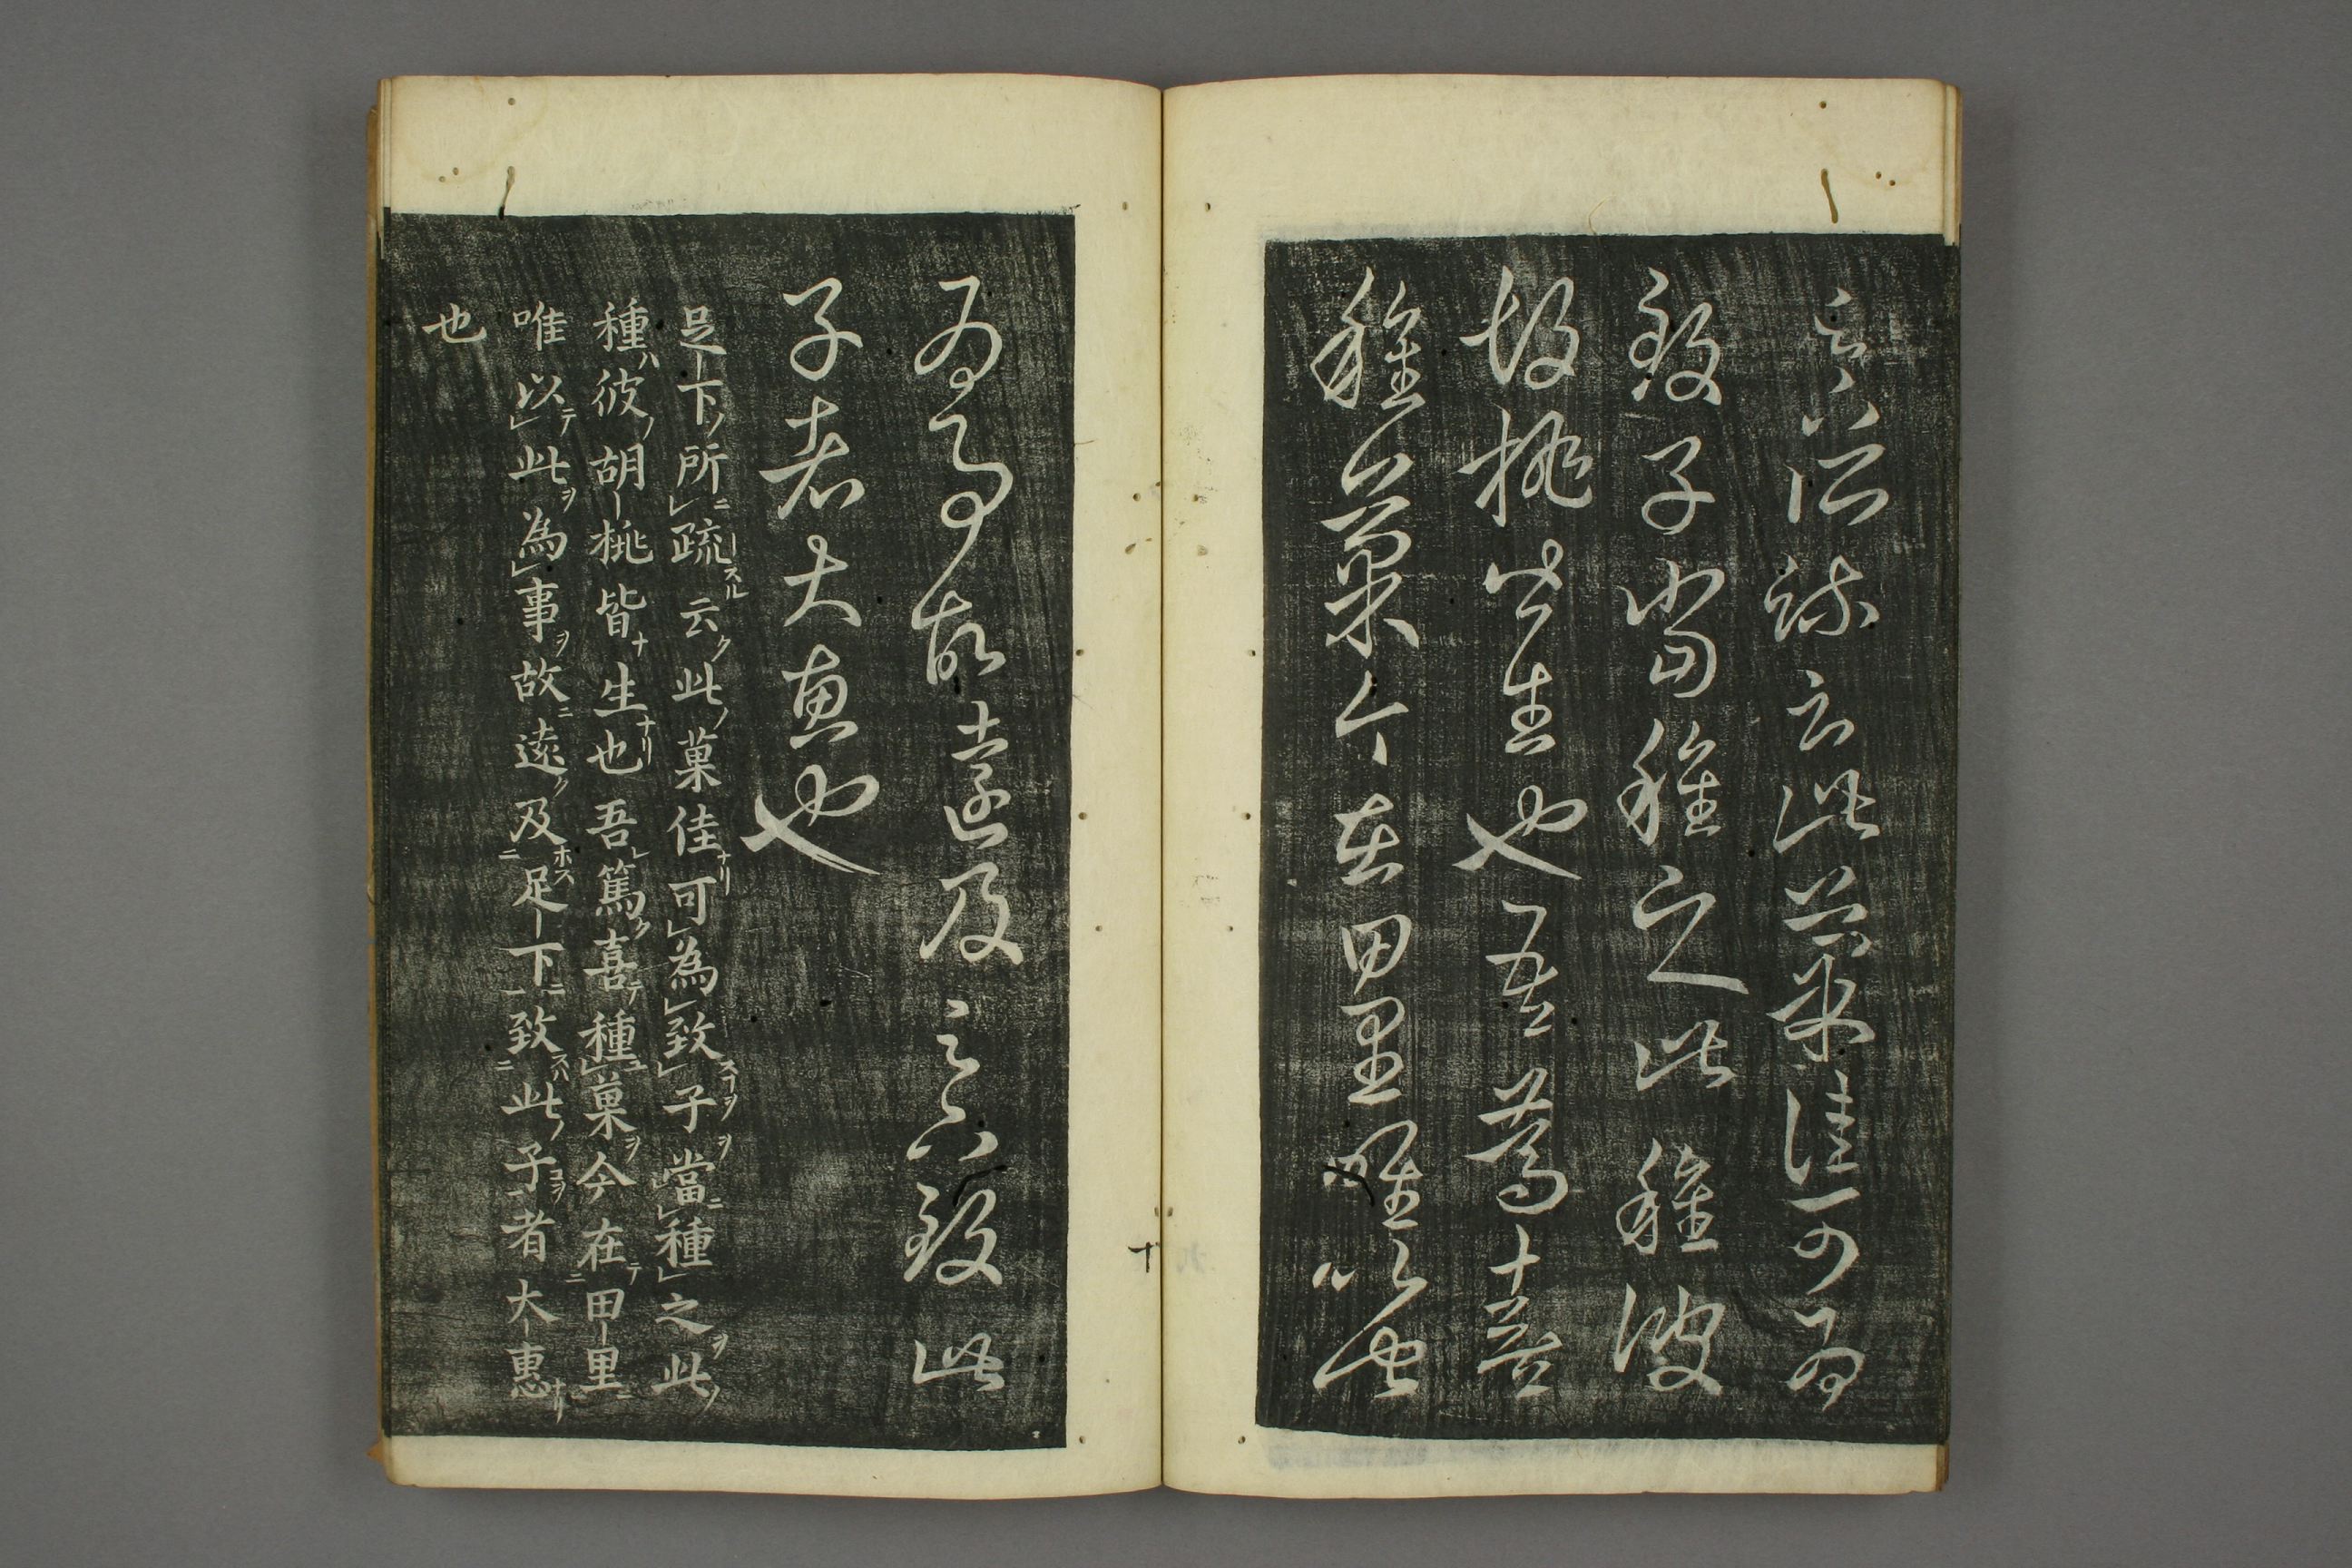 足下所疏云此菓佳可為
致子當種之此種彼
胡桃皆生也吾篤喜
種菓今在田里唯以此
十
為事故遠及足下致此
子者大惠也
足下所疏云此菓佳可為致子當種之此
種彼胡桃皆生也吾篤喜種菓今在田里
唯以此為事故遠及足下致此子者大惠
也